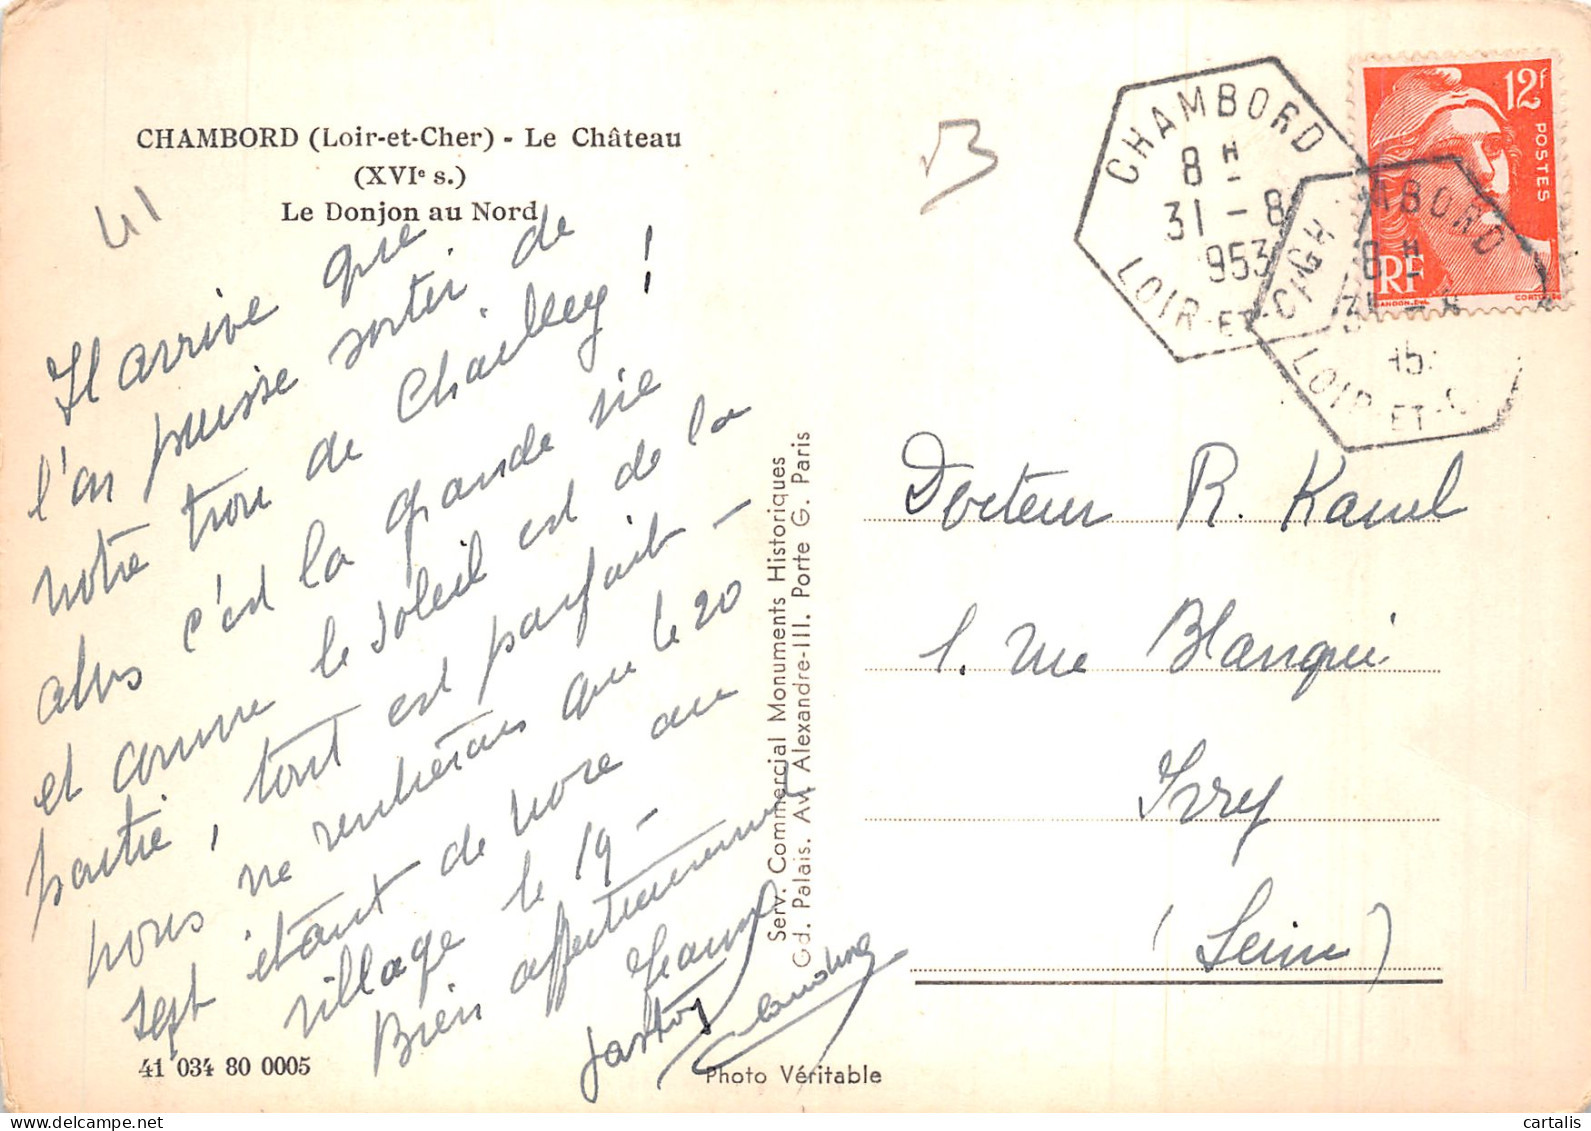 CHAMBORD (Loir-et-Cher) - Le Château
(XVIe s.)
Le Donjon au Nord
41
Il arrive que
l'on puisse sortir de
notre trou de Chailley !
alors c'est la grande vie
et comme le soleil est de la
partie, tout est parfait -
nous ne rentrerons que le 20
sept étant de noce au
village le 19 -
Bien affectueusement
41 034 80 0005
Photo Véritable
Serv. Commercial Monuments Historiques
Gd. Palais. Av. Alexandre-III. Porte G. Paris
CHAMBORD
8H
31-8
953
LOIR-ET-CHER
12f
POSTES
RF
Docteur R. Kanel
1. rue Blanqui
Ivry
(Seine)
cartalis
www.delcampe.net